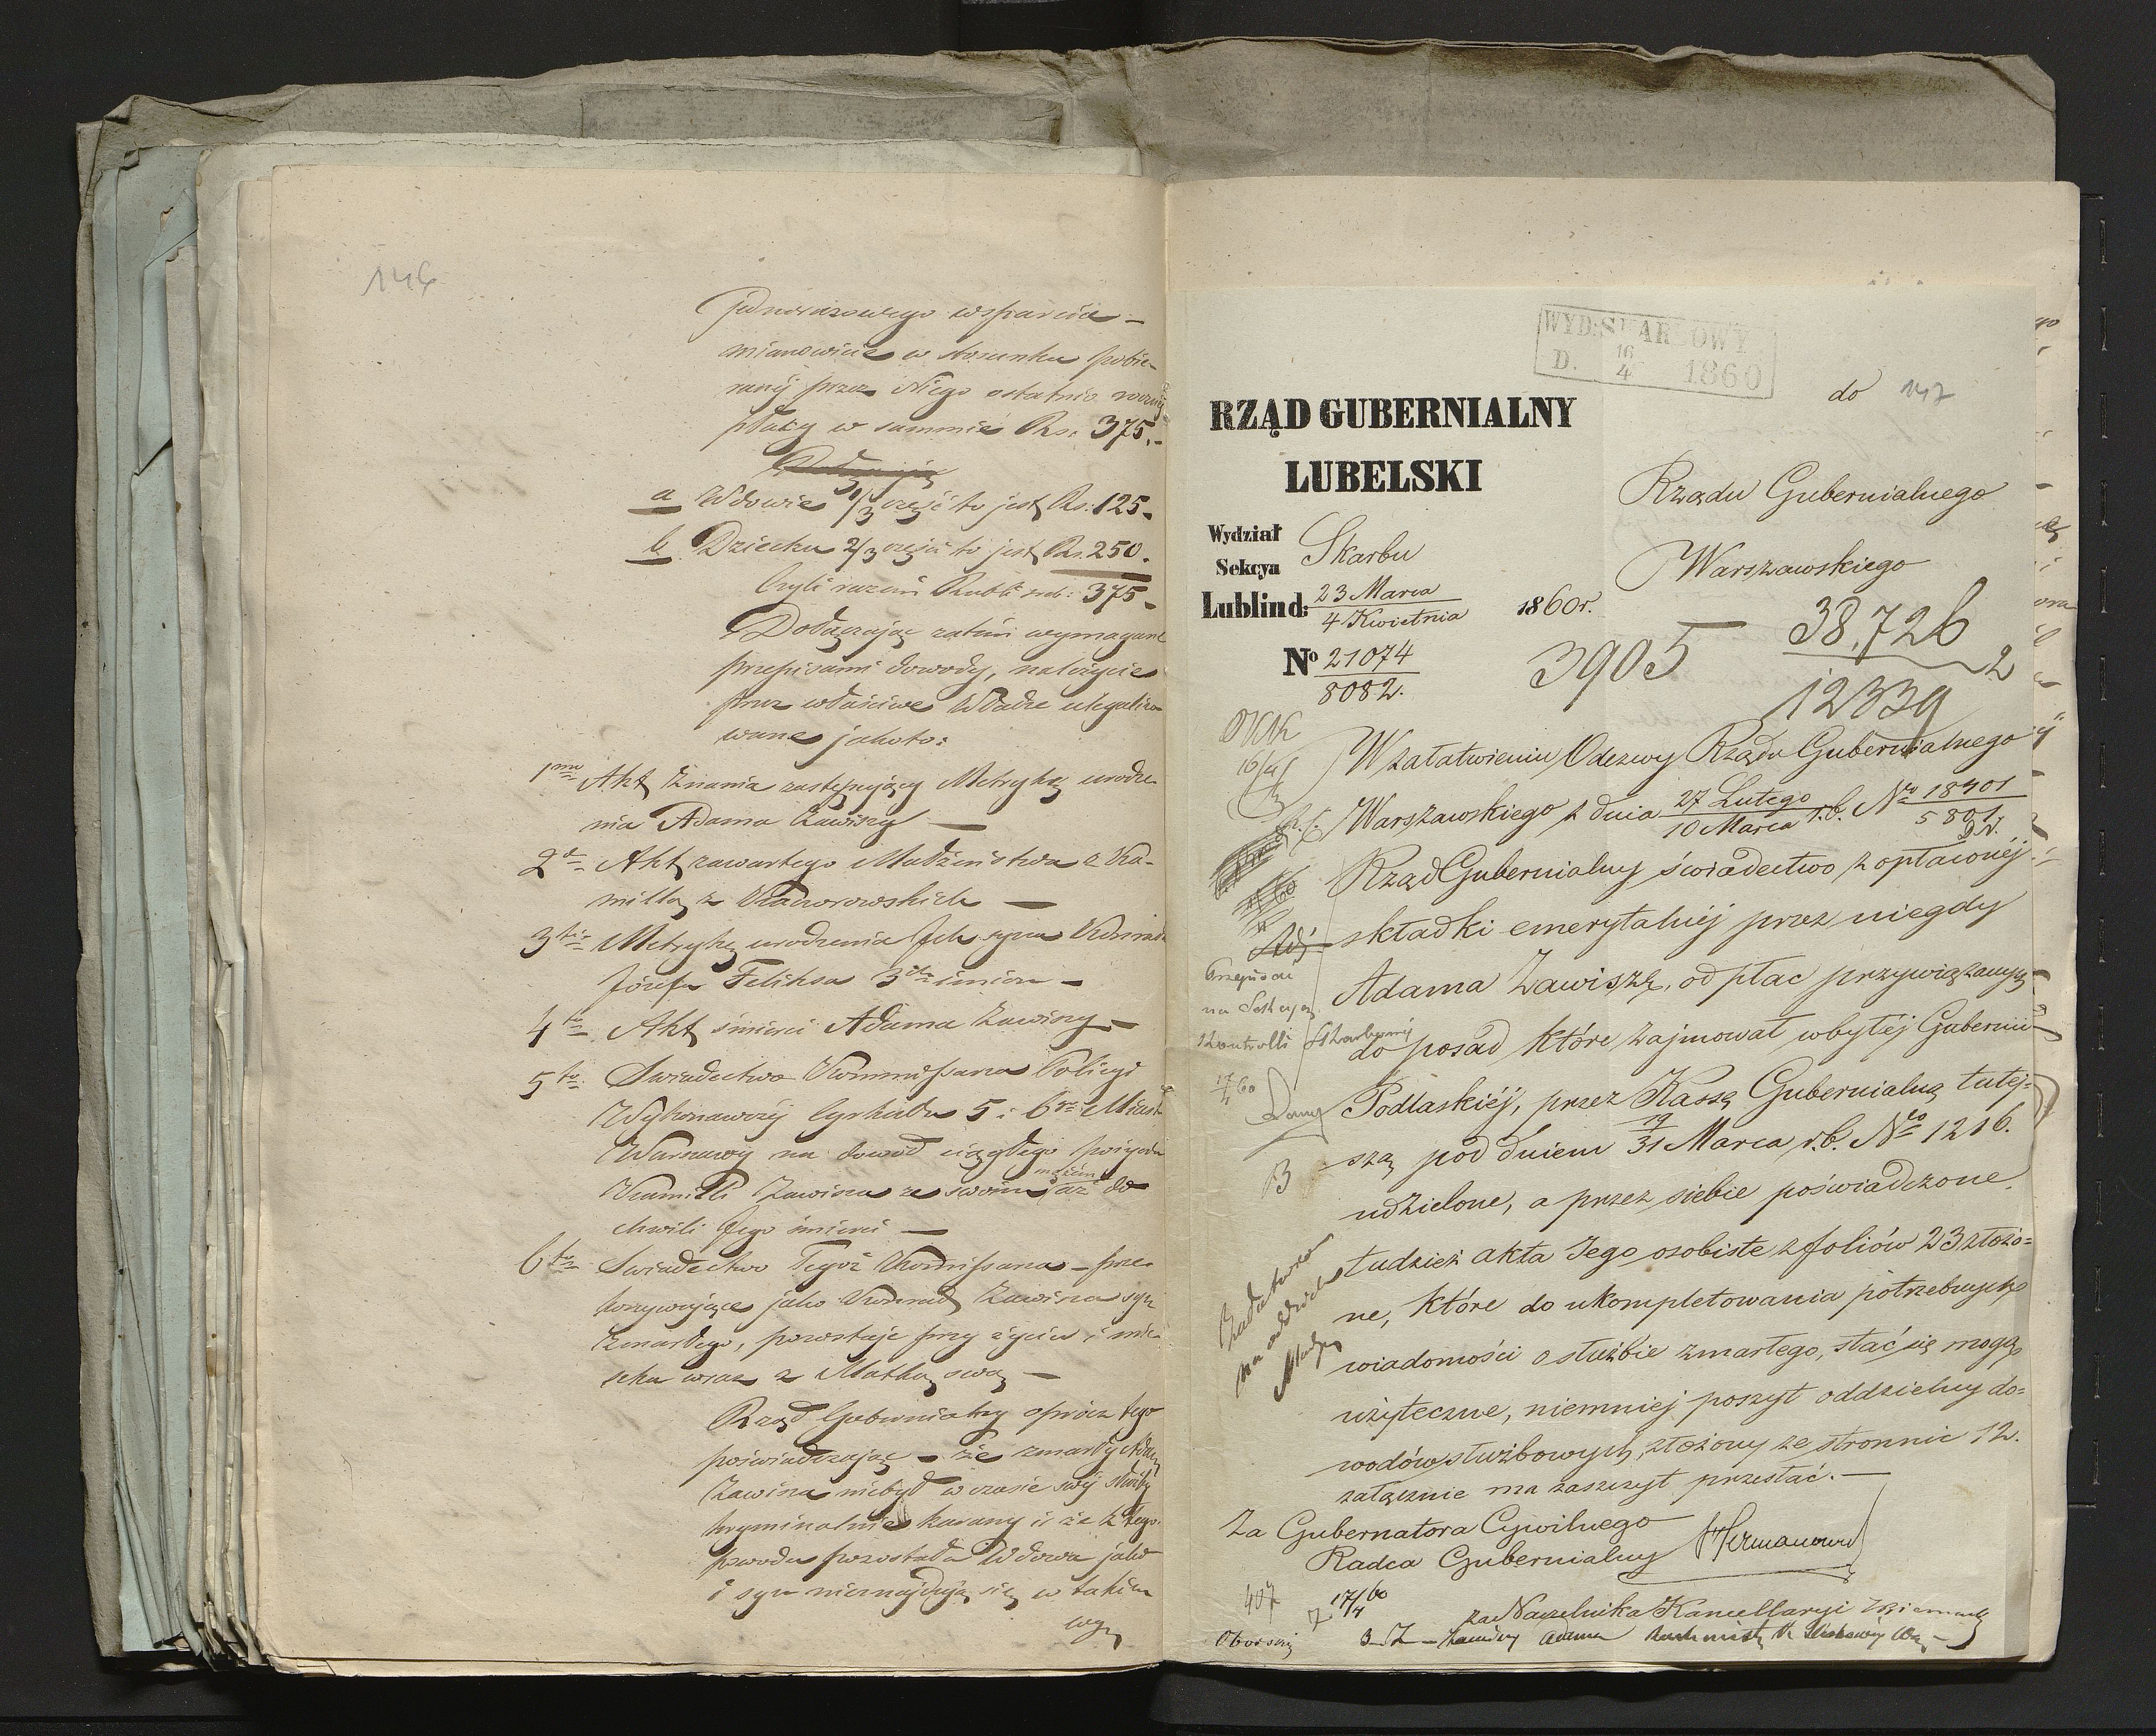 146
jednorazowego wsparcia –
mianowicie w stosunku pobie-
ranéj przez Niego ostatnio rocznéj
płacy w summie Rs: 375.–
a Wdowie 1/3 część to jest Rs: 125–
b Dziecku 2/3 części to jest Rs. 250.
czyli razem Rubli sr: 375–
Dołączając zatém wymagane
przepisami dowody, należycie
przez właściwe Władze ulegalizo
wane jakoto:
1mo Akt Znania zastępujący Metrykę urodze-
nia Adama Zawiszy —
2do Akt zawartego Małżeństwa z Ka-
millą z Kaworowskich —
3tio Metrykę urodzenia Ich syna Konrada
Józefa Feliksa 3ch imion –
4to Akt śmierci Adama Zawiszy –
5to Swiadectwo Kommissarza Policyi
Wykonawczéj Cyrkułu 5. i 6go Miasta
Warszawy na dowód ciągłego pożycia
Kamilli Zawisza ze swoim mężem aż do
chwili Jego śmierci —
6to Swiadectwo Tegoż Kommissarza – prze-
konywające jako Konrad Zawisza syn
zmarłego, pozostaje przy życiu i mie-
szka wraz z Matką swą —
Rząd Gubernialny oprócz tego
poświadczając – że zmarły Adam
Zawisza niebył w czasie swéj służby
kryminalnie karany i że z tego
powodu pozostała Wdowa jako
i syn nieznajdują się w takim
wy
WYD: SKARBOWY
D. 16/4 1860
do 147
RZĄD GUBERNIALNY
LUBELSKI
Rządu Gubernialnego
Warszawskiego
Wydział
Sekcya Skarbu
Lublin d: 23 Marca / 4 Kwietnia 1860 r.
No 21074 / 8082.
3905
38,726
2
12339
16/4
W załatwieniu Odezwy Rządu Gubernialnego
Warszawskiego z dnia 27 Lutego / 10 Marca r.b. Nro 18401 / 5801
Rząd Gubernialny świadectwo z opłaconéj
składki emerytalnéj przez niegdy
Adama Zawiszę, od płac przywiązanych
do posad które zajmował w byłéj Gubernii
Podlaskiéj, przez Kassę Gubernialną tutej-
szą pod dniem 19/31 Marca r.b. Nro 1216.
udzielone, a przez siebie poświadczone,
tudzież akta Jego osobiste z foliów 23 złożo-
ne, które do ukompletowania potrzebnych
wiadomości o służbie zmarłego, stać się mogą
użyteczne, niemniej poszyt oddzielny do-
wodów służbowych, złożony ze stronnic 12.
załącznie ma zaszczyt przesłać. —
Przepisać
na Sekcyą
Kontrolli Skarbowéj
17/4 60
B
Za Gubernatora Cywilnego
Radca Gubernialny
407
17/4 60
za Naczelnika Kancellaryi